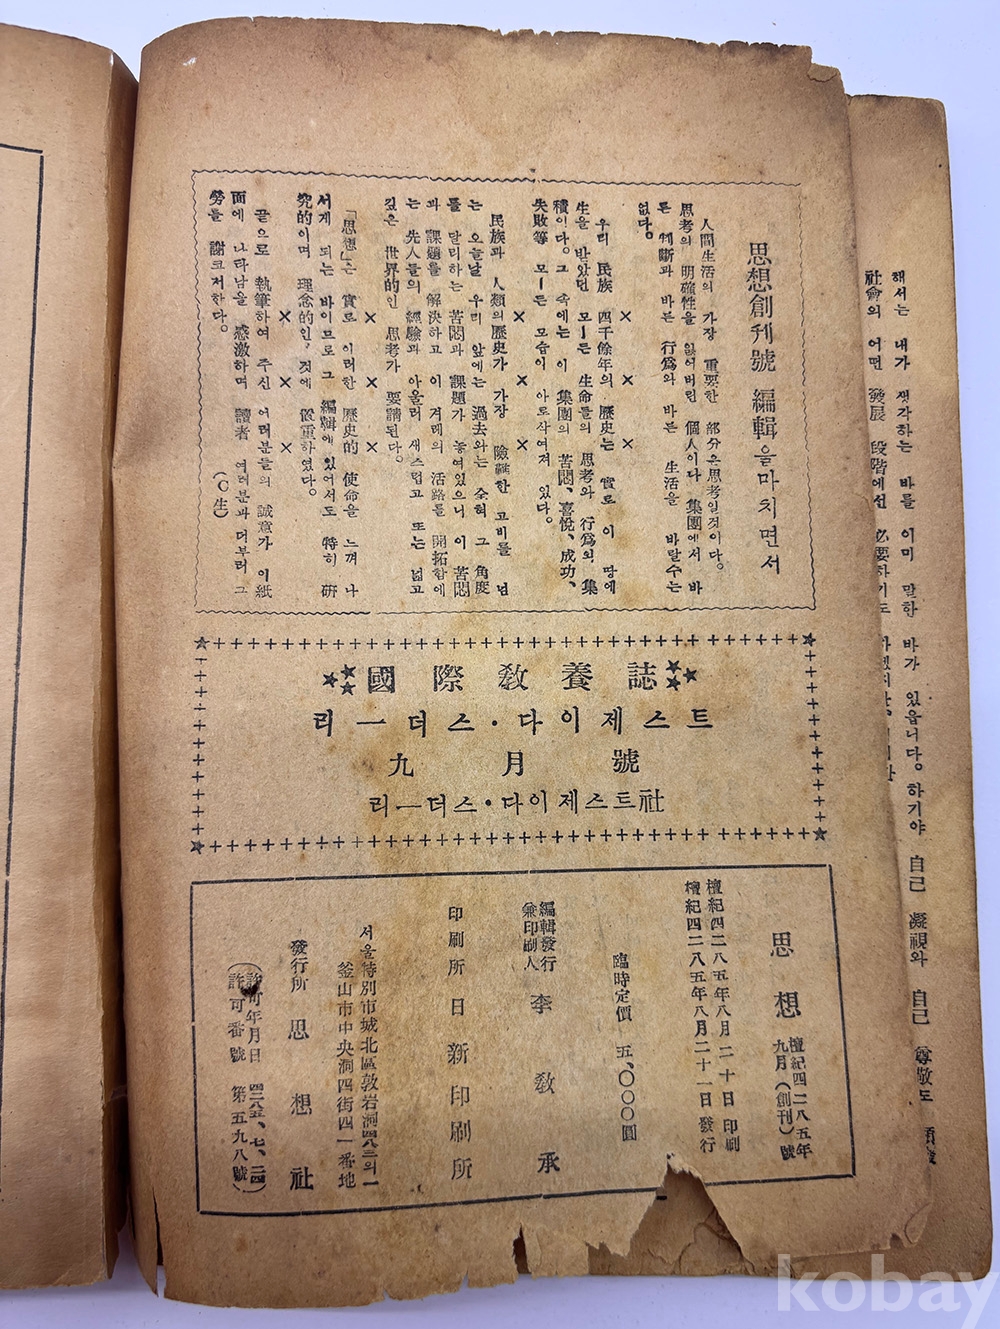 思想創刊號 編輯을마치면서
人間生活의 가장 重要한 部分은思考일것이다。
思考의 明確性을 잃어버린 個人이나 集團에서 바
른 判斷과 바른 行爲와 바른 生活을 바랄수는
없다。
× × ×
우리 民族 四千餘年의 歷史는 實로 이 땅에
生을 받았던 모ー든 生命들의 思考와 行爲의 集
積이다。그 속에는 이 集團의 苦悶、喜悅、成功、
失敗等 모ー든 모습이 아로삭여져 있다。
× × ×
民族과 人類의歷史가 가장 險難한 고비를 넘
는 오늘날 우리 앞에는 過去와는 全혀 그 角度
를 달리하는 苦悶과 課題가 놓여있으니 이 苦悶
과 課題를 解決하고 이 겨레의 活路를 開拓함에
는 先人들의 經驗과 아울러 새스럽고 또는 넓고
깊은 世界的인 思考가 要請된다。
× × ×
「思想」은 實로 이러한 歷史的 使命을 느껴 나
서게 되는 바이므로 그 編輯에 있어서도 特히 硏
究的이며 理念的인 것에 置重하였다。
× × ×
끝으로 執筆하여 주신 여러분들의 誠意가 이紙
面에 나타남을 感激하며 讀者 여러분과 더부러 그
勞를 謝코저한다。 (○生)
國際敎養誌
리ー더스・다이제스트
九月號
리ー더스・다이제스트社
思想 檀紀四二八五年
九月(創刊)號
檀紀四二八五年八月二十日 印刷
檀紀四二八五年八月二十一日 發行
臨時定價 五、〇〇〇圓
編輯發行
兼印刷人 李敎承
印刷所 日新印刷所
서울特別市城北區敦岩洞四八三의一
釜山市中央洞四街四一番地
發行所 思想社
(許可年月日 四二八五、七、二四)
(許可番號 第五九八號)
해서는 내가 생각하는 바를 이미 말한 바가 있읍니다。하기야 自己 凝視와 自己 尊敬도
社會의 어떤 發展 段階에선 必要하기도
kobay